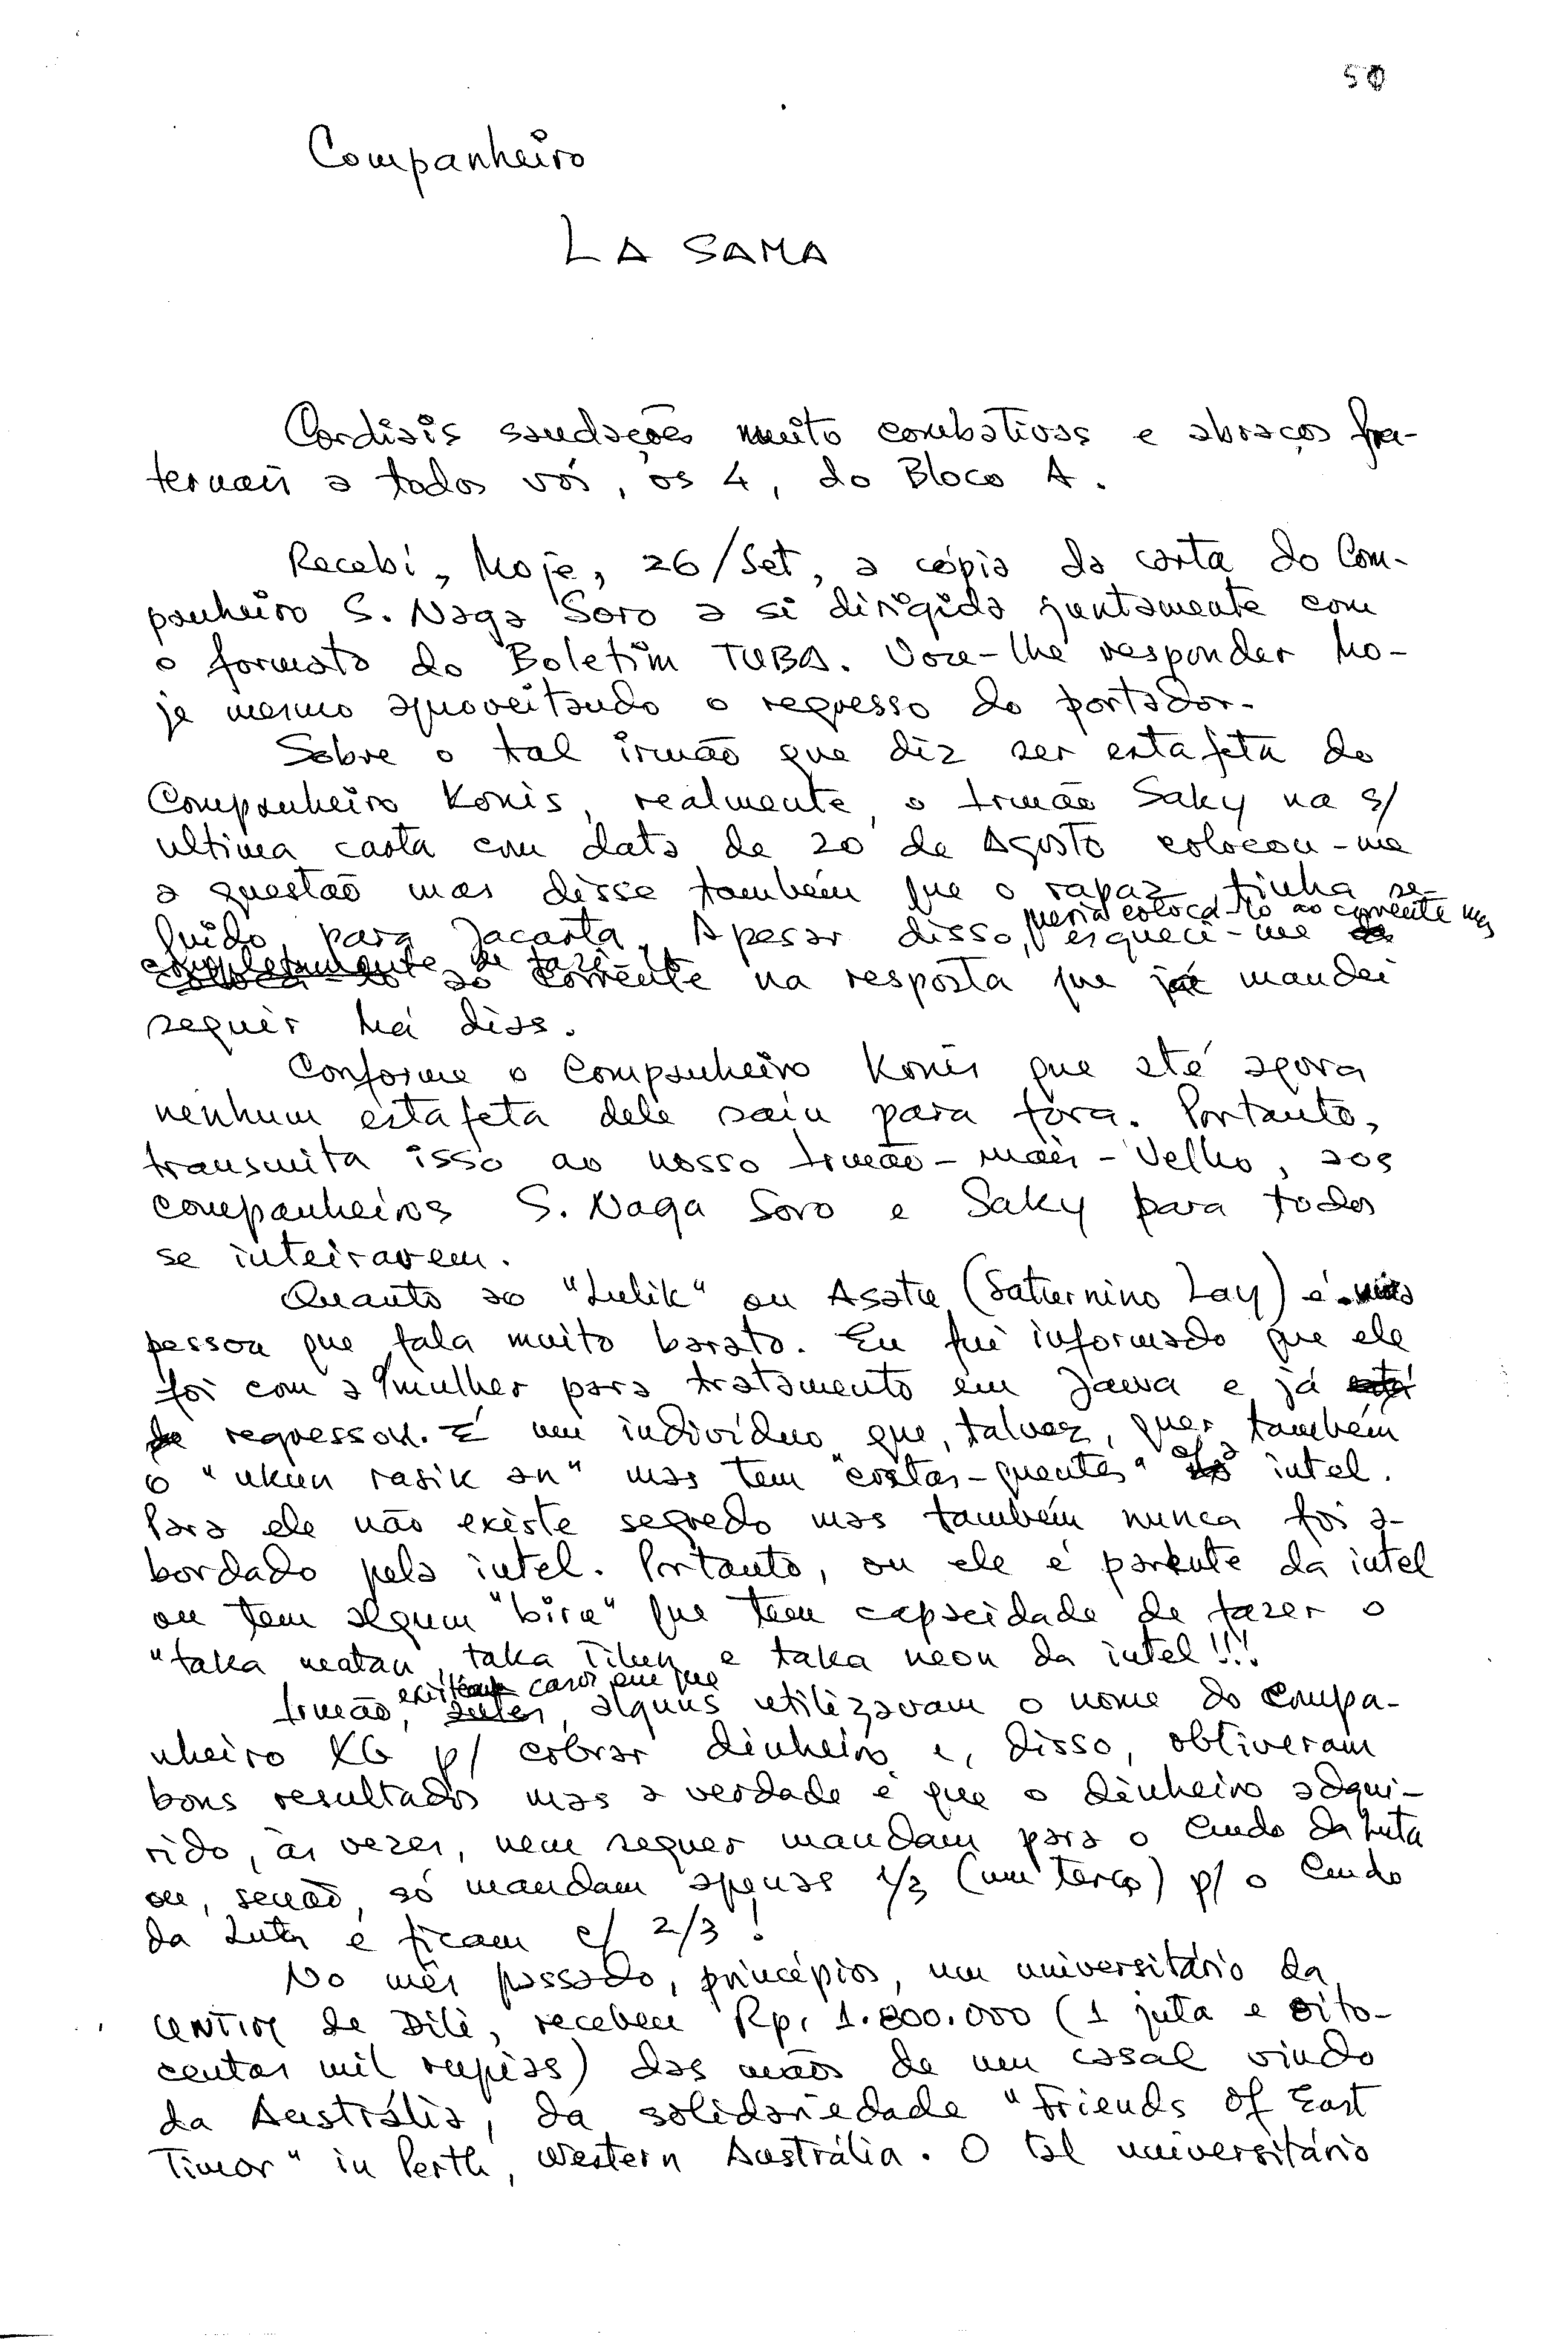 50
Companheiro
LA SAMA
Cordiais saudações muito combativas e abraços fra-
ternais a todos vós, os 4, do Bloco A.
Recebi, hoje, 26/Set, a cópia da carta do Com-
panheiro S. Naga Soro a si dirigida juntamente com
o formato do Boletim TUBA. Vou-lhe responder ho-
je mesmo aproveitando o regresso do portador.
Sobre o tal irmão que diz ser estafeta do
Companheiro Konis, realmente, o Irmão Saky na s/
ultima carta com data de 20 de Agosto colocou-me
a questão mas disse também que o rapaz tinha se-
guido para Jacarta. Apesar disso, queria colocá-lo ao corrente mas esqueci-me
completamente de fazê-lo na resposta que já mandei
seguir há dias.
Conforme o Companheiro Konis que até agora
nenhum estafeta dele saiu para fora. Portanto,
transmita isso ao nosso Irmão-mais-Velho, aos
companheiros S. Naga Soro e Saky para todos
se inteirarem.
Quanto ao "Lulik" ou Asatu (Saturnino Lay) é uma
pessoa que fala muito barato. Eu fui informado que ele
foi com a mulher para tratamento em Jawa e já
regressou. É um indivíduo que, talvez, quer também
o "ukun rasik an" mas tem "costas-quentes" intel.
Para ele não existe segredo mas também nunca foi a-
bordado pela intel. Portanto, ou ele é parente da intel
ou tem algum "biru" que tem capacidade de fazer o
"taka matan, taka tilun e taka neon da intel!!!
Irmão, existem casos em que alguns utilizavam o nome do Compa-
nheiro XG p/ cobrar dinheiro e, disso, obtiveram
bons resultados mas a verdade é que o dinheiro adqui-
rido, às vezes, nem sequer mandam para o Cmdo da Luta
ou, senão, só mandam apenas 1/3 (um terço) p/ o Cmdo
da Luta e ficam c/ 2/3!
No mês passado, princípios, um universitário da
UNTIM de Dili, recebeu Rp. 1.800.000 (1 juta e oito-
centas mil rupias) das mãos de um casal vindo
da Austrália, da solidariedade "Friends Of East
Timor" in Perth, Western Austrália. O tal universitário